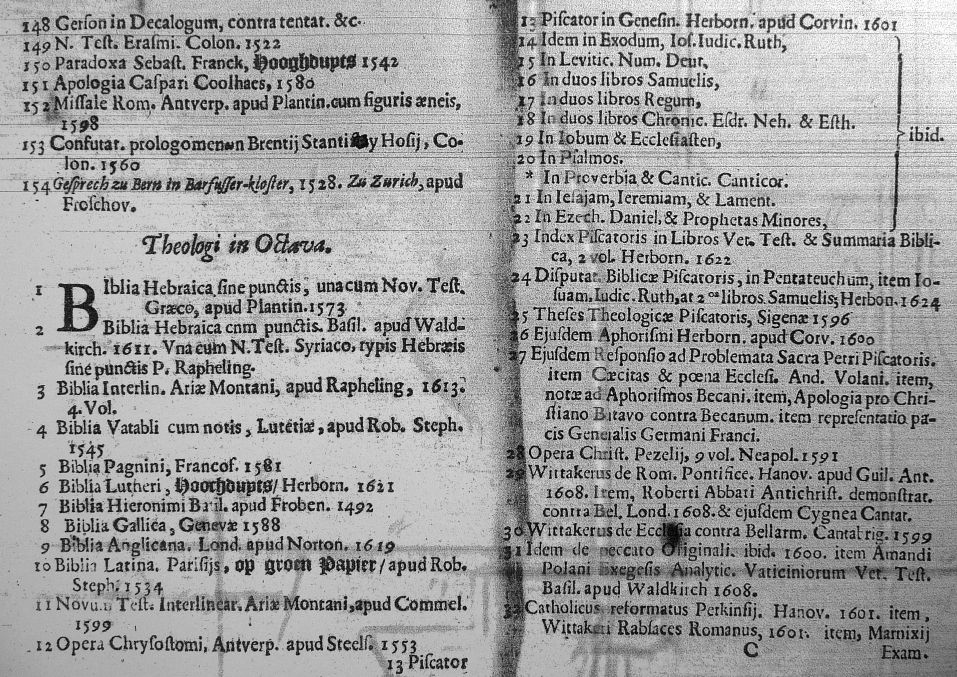 148 Gerſon in Decalogum, contra tentat. &c.
149 N. Teſt. Eraſmi. Colon. 1522
150 Paradoxa Sebaſt. Franck, Hooghdupts 1542
151 Apologia Caſpari Coolhaes, 1580
152 Miſſale Rom. Antverp. apud Plantin. cum figuris æneis,
1598
153 Confutat. prologomenωn Brentij Hoſij, Co-
lon. 1560
154 Geſprech zu Bern in Barfuſſer-kloſter, 1528. Zu Zurich, apud
Froſchov.
Theologi in Octava.
1 BIblia Hebraica ſine punctis, una cum Nov. Teſt.
Græco, apud Plantin. 1573
2 Biblia Hebraica cnm punctis. Baſil. apud Wald-
kirch. 1611. Vna cum N. Teſt. Syriaco, typis Hebræis
ſine punctis P. Rapheling.
3 Biblia Interlin. Ariæ Montani, apud Rapheling, 1613.
4. Vol.
4 Biblia Vatabli cum notis, Lutetiæ, apud Rob. Steph.
1545
5 Biblia Pagnini, Francof. 1581
6 Biblia Lutheri, Hoochdupts/ Herborn. 1621
7 Biblia Hieronimi Baſil. apud Froben. 1492
8 Biblia Gallica, Genevæ 1588
9 Biblia Anglicana. Lond. apud Norton. 1619
10 Biblia Latina. Pariſijs, op groen Papier/ apud Rob.
Steph. 1534
11 Novum Teſt. Interlinear. Ariæ Montani, apud Commel.
1599
12 Opera Chryſoſtomi, Antverp. apud Steelſ. 1553
13 Piſcator
13 Piſcator in Geneſin. Herborn. apud Corvin. 1601
14 Idem in Exodum, Ioſ. Iudic. Ruth,
15 In Levitic. Num. Deut,
16 In duos libros Samuelis,
17 In duos libros Regum,
18 In duos libros Chronic. Eſdr. Neh. & Eſth.
19 In Iobum & Eccleſiaſten,
ibid.
20 In Pſalmos.
* In Proverbia & Cantic. Canticor.
21 In Ieſajam, Ieremiam, & Lament.
22 In Ezech. Daniel, & Prophetas Minores,
23 Index Piſcatoris in Libros Vet. Teſt. & Summaria Bibli-
ca, 2 vol. Herborn. 1622
24 Diſputat. Biblicæ Piſcatoris, in Pentateuchum, item Io-
ſuam, Iudic. Ruth, at 2 libros Samuelis, Herbon. 1624
25 Theſes Theologicæ Piſcatoris, Sigenæ 1596
26 Ejuſdem Aphoriſmi Herborn. apud Corv. 1600
27 Ejuſdem Reſponſio ad Problemata Sacra Petri Piſcatoris.
item Cæcitas & pœna Eccleſi. And. Volani. item,
notæ ad Aphoriſmos Becani. item, Apologia pro Chri-
ſtiano Batavo contra Becanum. item repreſentatio pa-
cis Generalis Germani Franci.
28 Opera Chriſt. Pezelij, 9 vol. Neapol. 1591
29 Wittakerus de Rom. Pontifice. Hanov. apud Guil. Ant.
1608. Item, Roberti Abbati Antichriſt. demonſtrat.
contra Bel, Lond. 1608. & ejuſdem Cygnea Cantat.
30 Wittakerus de Eccleſia contra Bellarm. Cantabrig. 1599
31 Idem de peccato Originali. ibid. 1600. item Amandi
Polani Exegeſis Analytic. Vaticiniorum Vet. Teſt.
Baſil. apud Waldkirch 1608.
32 Catholicus reformatus Perkinſij. Hanov. 1601. item,
Wittakeri Rabſaces Romanus, 1601. item, Marnixij
C
Exam.